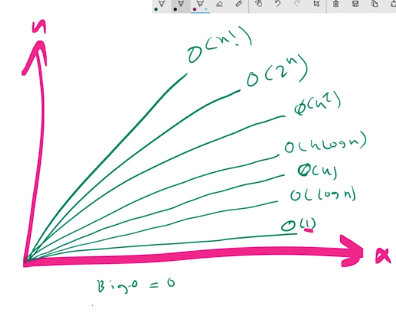 n
O(n!)
O(2^n)
O(n²)
O(n log n)
O(n)
O(log n)
O(1)
x
Big-O = O